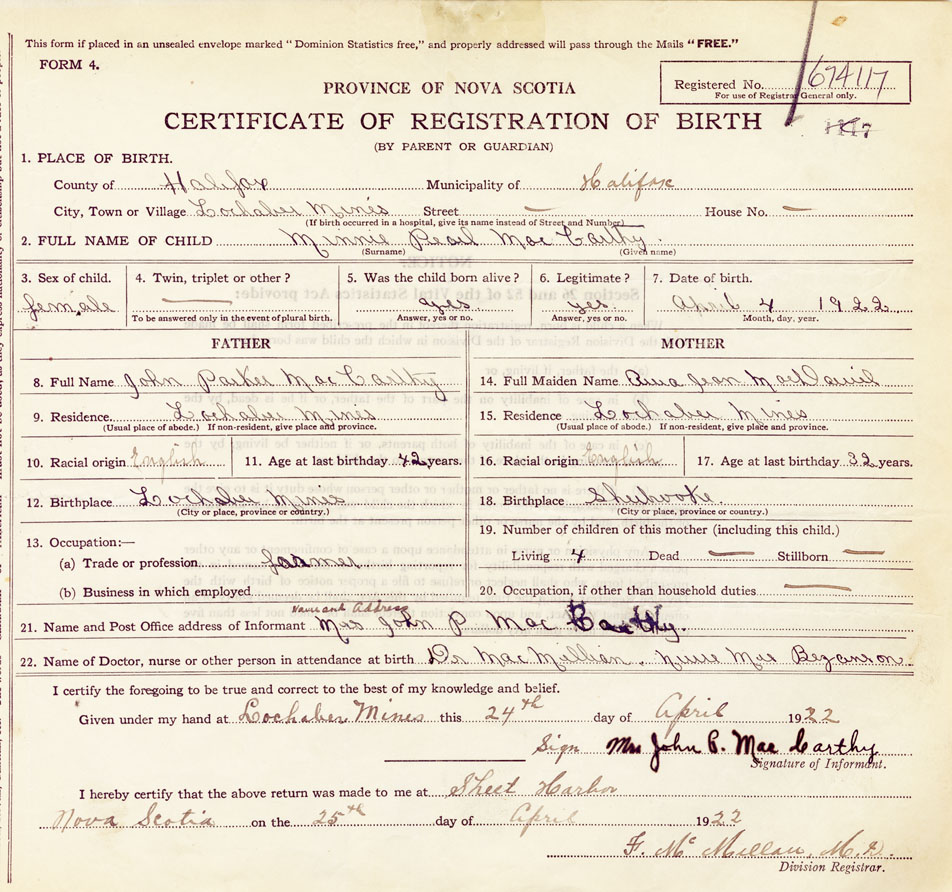 This form if placed in an unsealed envelope marked "Dominion Statistics free," and properly addressed will pass through the Mails "FREE."
FORM 4.
Registered No. 674117
For use of Registrar General only.
PROVINCE OF NOVA SCOTIA
CERTIFICATE OF REGISTRATION OF BIRTH
(BY PARENT OR GUARDIAN)
1. PLACE OF BIRTH.
County of Halifax Municipality of Halifax
City, Town or Village Lochaber Mines Street — House No. —
(If birth occurred in a hospital, give its name instead of Street and Number)
2. FULL NAME OF CHILD Minnie Pearl MacCarthy
(Surname) (Given name)
3. Sex of child. 4. Twin, triplet or other? 5. Was the child born alive? 6. Legitimate? 7. Date of birth.
female — yes yes April 4 1922
To be answered only in the event of plural birth. Answer, yes or no. Answer, yes or no. Month, day, year.
FATHER MOTHER
8. Full Name John Parker MacCarthy 14. Full Maiden Name Jean MacDaniel
9. Residence. Lochaber Mines 15. Residence Lochaber Mines
(Usual place of abode.) If non-resident, give place and province. (Usual place of abode.) If non-resident, give place and province.
10. Racial origin English 11. Age at last birthday 42 years. 16. Racial origin English 17. Age at last birthday 32 years.
12. Birthplace Lochaber Mines 18. Birthplace
(City or place, province or country.) (City or place, province or country.)
13. Occupation:— 19. Number of children of this mother (including this child.)
(a) Trade or profession farmer Living 4 Dead — Stillborn —
(b) Business in which employed 20. Occupation, if other than household duties —
Name and Address
21. Name and Post Office address of Informant Mrs John P MacCarthy.
22. Name of Doctor, nurse or other person in attendance at birth Dr MacMillan. Nurse Mrs Bezanson
I certify the foregoing to be true and correct to the best of my knowledge and belief.
Given under my hand at Lochaber Mines this 24th day of April 1922
Sign Mrs John P. MacCarthy
Signature of Informant.
I hereby certify that the above return was made to me at Sheet Harbor
Nova Scotia on the 25th day of April 1922
F. McMillan, M.D.
Division Registrar.